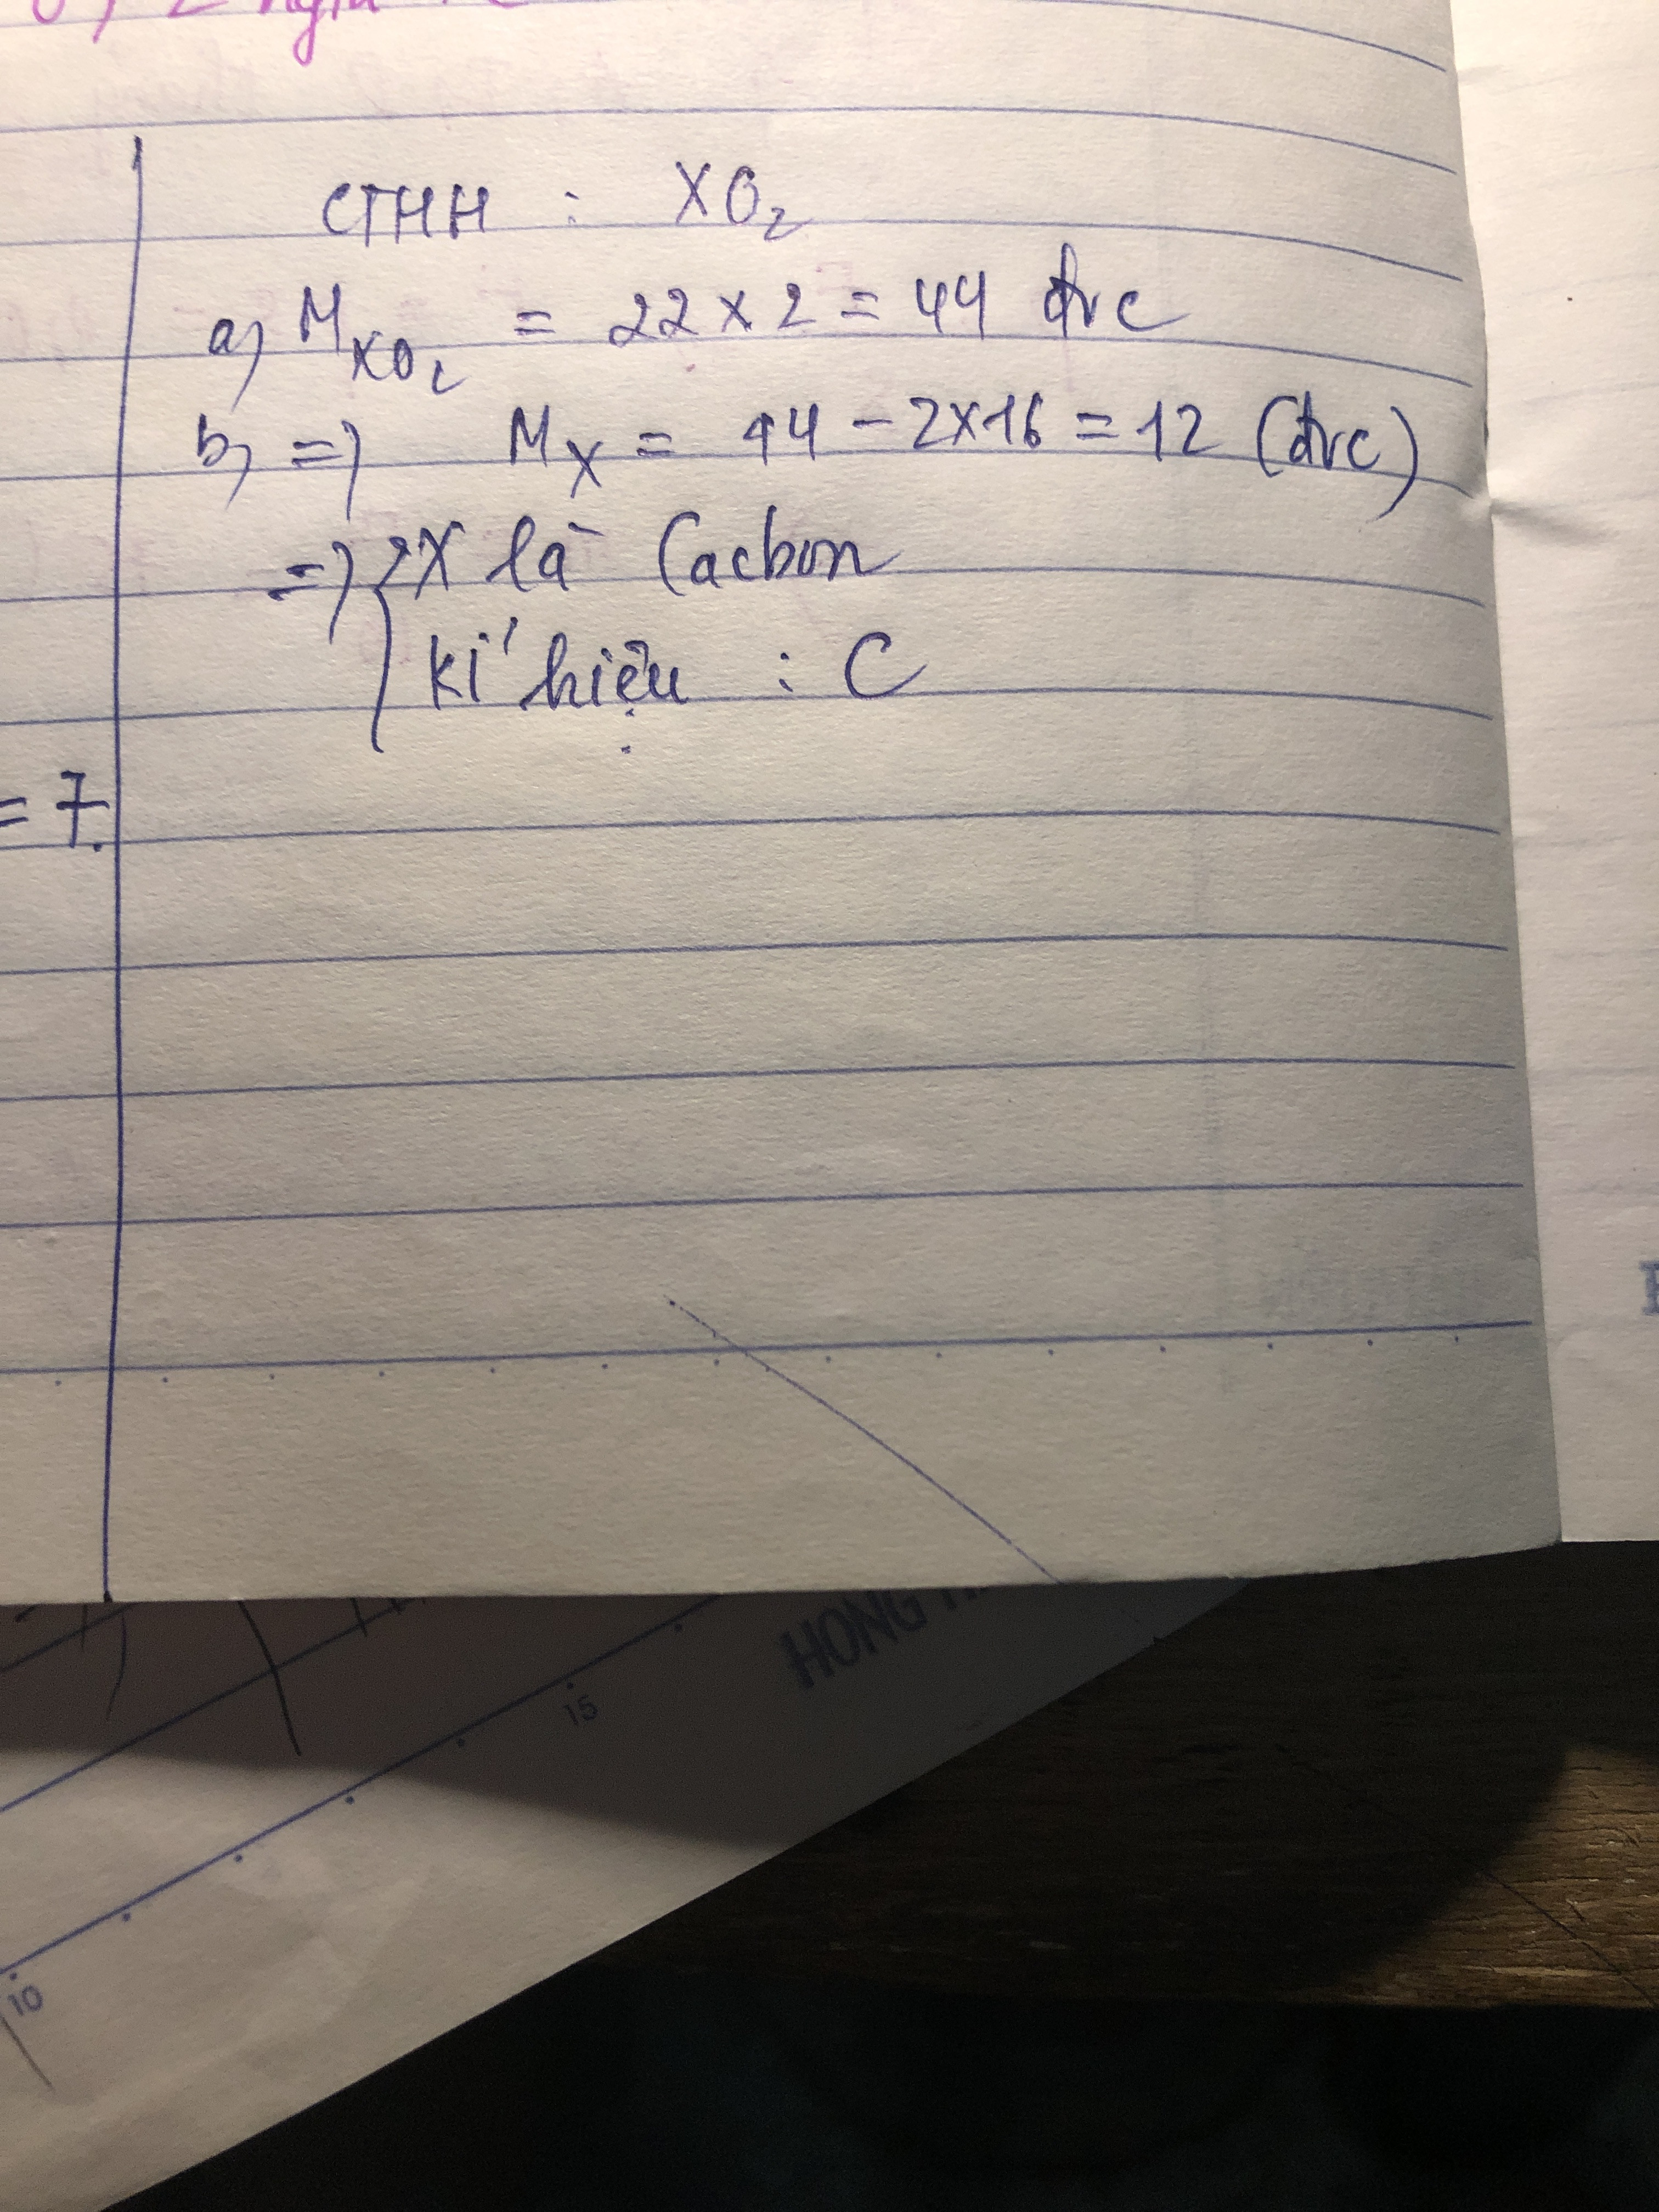 CTHH : XO₂
a) M_XO₂ = 22 x 2 = 44 đvc
b) => M_X = 44 - 2x16 = 12 (đvc)
=> { X là Cacbon
kí hiệu : C
= 7.
HONG
15
10